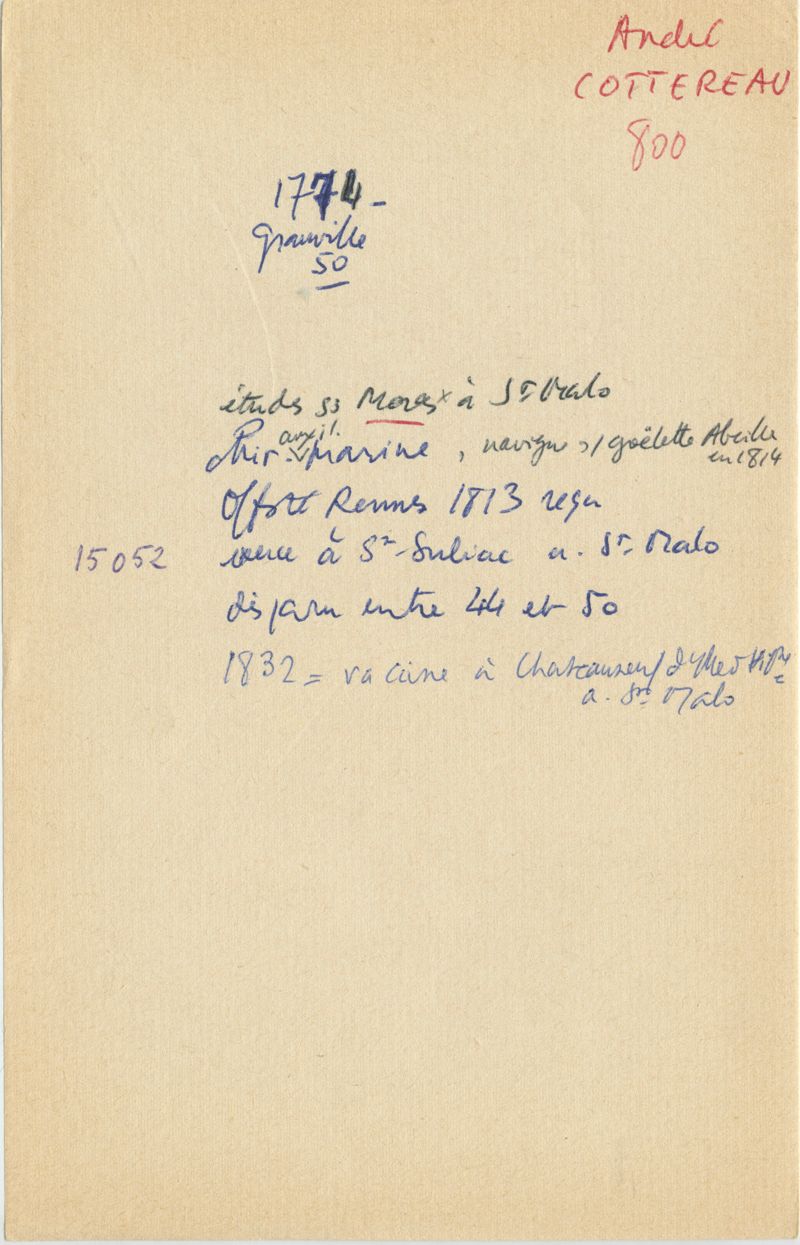 André
COTTEREAU
800
1774 -
Granville
50
études ss Moras à St Malo
Chir. auxil. marine, navigue s/ goëlette Abeille
en 1814
Off. sté Rennes 1813 reçu
15052 exerce à St-Suliac a. St-Malo
disparu entre 44 et 50
1832 = vaccine à Chateauneuf d'Ille &
a. St Malo